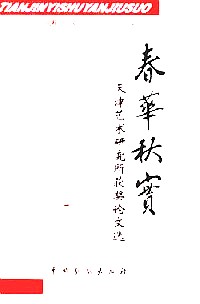 TIANJINYISHUYANJIUSUO
春華秋實
天津艺术研究所获奖论文选
中国戏剧出版社